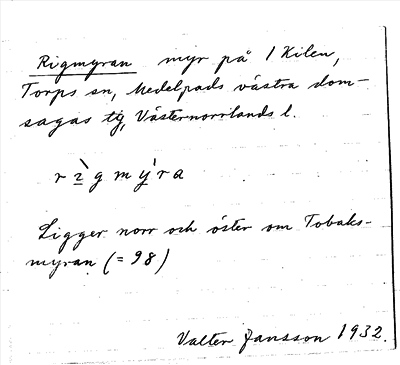 Rigmyran myr på 1 Kilen,
Torps sn, Medelpads västra dom-
sagas tg, Västernorrlands l.
r ì g m ý r a
Ligger norr och öster om Tobaks-
myran (= 98)
Valter Jansson 1932.